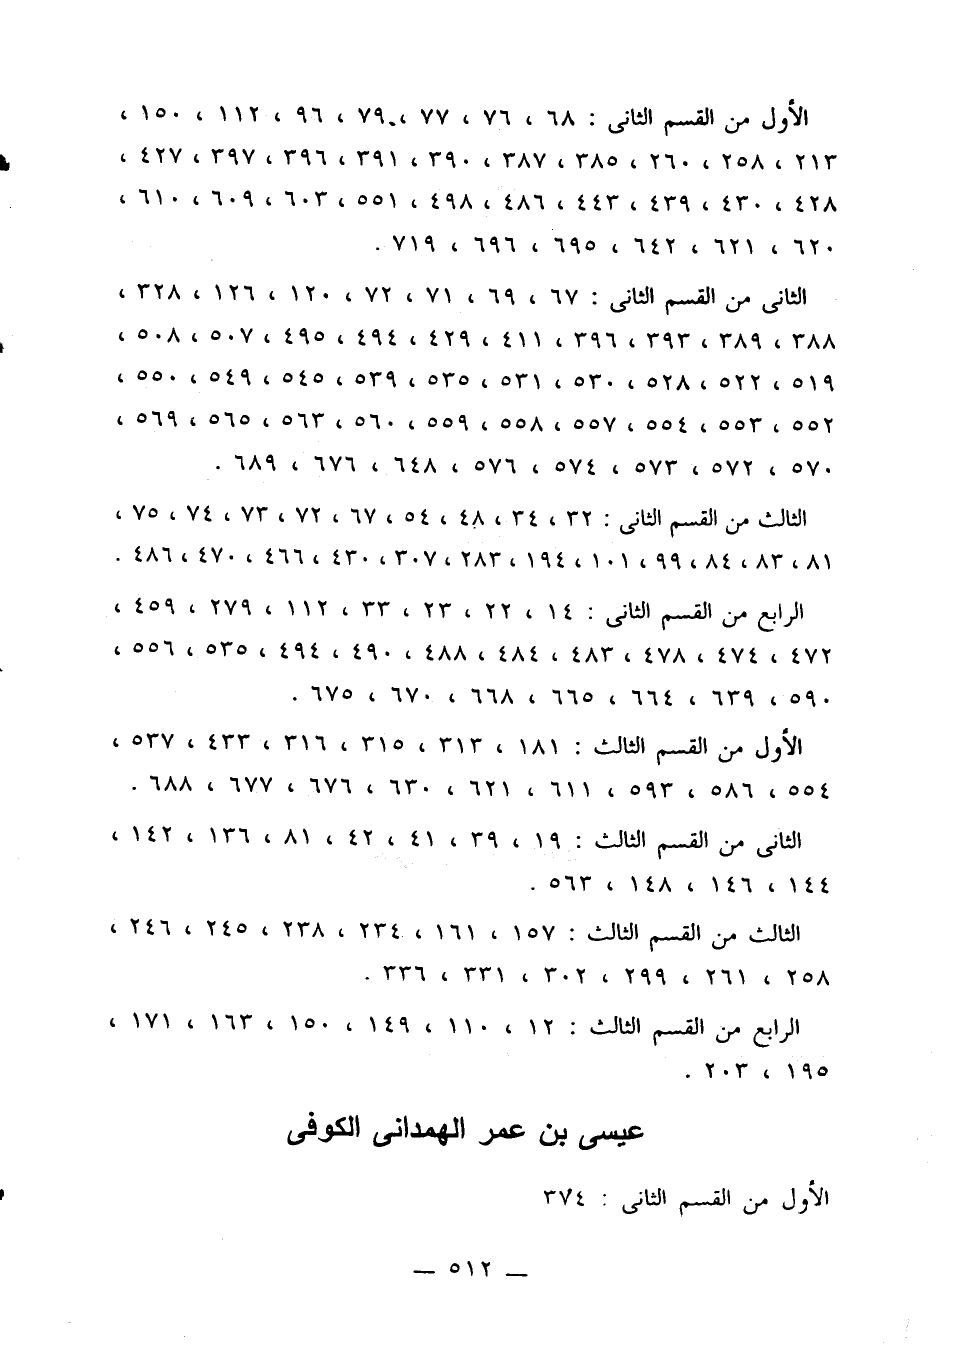 الأول من القسم الثانى : ٦٨ ، ٧٦ ، ٧٧ ، ٧٩ ، ٩٦ ، ١١٢ ، ١٥٠ ،
٢١٣ ، ٢٥٨ ، ٢٦٠ ، ٣٨٥ ، ٣٨٧ ، ٣٩٠ ، ٣٩١ ، ٣٩٦ ، ٣٩٧ ، ٤٢٧ ،
٤٢٨ ، ٤٣٠ ، ٤٣٩ ، ٤٤٣ ، ٤٨٦ ، ٤٩٨ ، ٥٥١ ، ٦٠٣ ، ٦٠٩ ، ٦١٠ ،
٦٢٠ ، ٦٢١ ، ٦٤٢ ، ٦٩٥ ، ٦٩٦ ، ٧١٩ .
الثانى من القسم الثانى : ٦٧ ، ٦٩ ، ٧١ ، ٧٢ ، ١٢٠ ، ١٢٦ ، ٣٢٨ ،
٣٨٨ ، ٣٨٩ ، ٣٩٣ ، ٣٩٦ ، ٤١١ ، ٤٢٩ ، ٤٩٤ ، ٤٩٥ ، ٥٠٧ ، ٥٠٨ ،
٥١٩ ، ٥٢٢ ، ٥٢٨ ، ٥٣٠ ، ٥٣١ ، ٥٣٥ ، ٥٣٩ ، ٥٤٥ ، ٥٤٩ ، ٥٥٠ ،
٥٥٢ ، ٥٥٣ ، ٥٥٤ ، ٥٥٧ ، ٥٥٨ ، ٥٥٩ ، ٥٦٠ ، ٥٦٣ ، ٥٦٥ ، ٥٦٩ ،
٥٧٠ ، ٥٧٢ ، ٥٧٣ ، ٥٧٤ ، ٥٧٦ ، ٦٤٨ ، ٦٧٦ ، ٦٨٩ .
الثالث من القسم الثانى : ٣٢ ، ٣٤ ، ٤٨ ، ٥٤ ، ٦٧ ، ٧٢ ، ٧٣ ، ٧٤ ، ٧٥ ،
٨١ ، ٨٣ ، ٨٤ ، ٩٩ ، ١٠١ ، ١٩٤ ، ٢٨٣ ، ٣٠٧ ، ٤٣٠ ، ٤٦٦ ، ٤٧٠ ، ٤٨٦ .
الرابع من القسم الثانى : ١٤ ، ٢٢ ، ٢٣ ، ٣٣ ، ١١٢ ، ٢٧٩ ، ٤٥٩ ،
٤٧٢ ، ٤٧٤ ، ٤٧٨ ، ٤٨٣ ، ٤٨٤ ، ٤٨٨ ، ٤٩٠ ، ٤٩٤ ، ٥٣٥ ، ٥٥٦ ،
٥٩٠ ، ٦٣٩ ، ٦٦٤ ، ٦٦٥ ، ٦٦٨ ، ٦٧٠ ، ٦٧٥ .
الأول من القسم الثالث : ١٨١ ، ٣١٣ ، ٣١٥ ، ٣١٦ ، ٤٣٣ ، ٥٣٧ ،
٥٥٤ ، ٥٨٦ ، ٥٩٣ ، ٦١١ ، ٦٢١ ، ٦٣٠ ، ٦٧٦ ، ٦٧٧ ، ٦٨٨ .
الثانى من القسم الثالث : ١٩ ، ٣٩ ، ٤١ ، ٤٢ ، ٨١ ، ١٣٦ ، ١٤٢ ،
١٤٤ ، ١٤٦ ، ١٤٨ ، ٥٦٣ .
الثالث من القسم الثالث : ١٥٧ ، ١٦١ ، ٢٣٤ ، ٢٣٨ ، ٢٤٥ ، ٢٤٦ ،
٢٥٨ ، ٢٦١ ، ٢٩٩ ، ٣٠٢ ، ٣٣١ ، ٣٣٦ .
الرابع من القسم الثالث : ١٢ ، ١١٠ ، ١٤٩ ، ١٥٠ ، ١٦٣ ، ١٧١ ،
١٩٥ ، ٢٠٣ .
عيسى بن عمر الهمدانى الكوفى
الأول من القسم الثانى : ٣٧٤
— ٥١٢ —